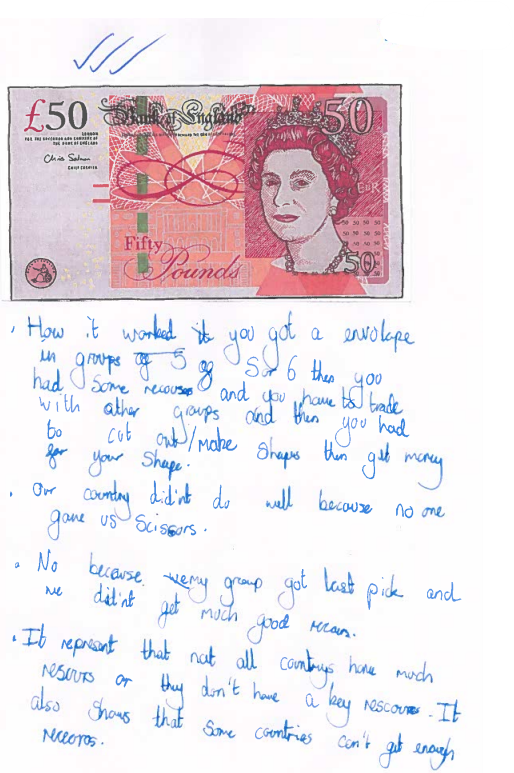 £50
Bank of England
50
LONDON
FOR THE GOVERNOR AND COMPANY OF
THE BANK OF ENGLAND
CHIEF CASHIER
EUR
50 50 50
50 50 50 50
50 50 50 50
Fifty
Pounds
50
• How it worked is you got a envolape
in groups of 5 og 5 or 6 then you
had some recouses and you have to trade
with other groups and then you had
to cut out/make shapes then get money
for your shape.
• Our country did'nt do well because no one
gave us scissors.
• No because my group got last pick and
we did'nt get much good recours.
• It represent that not all countrys have much
resours or they don't have a key rescours. It
also shows that some countries can't get enough